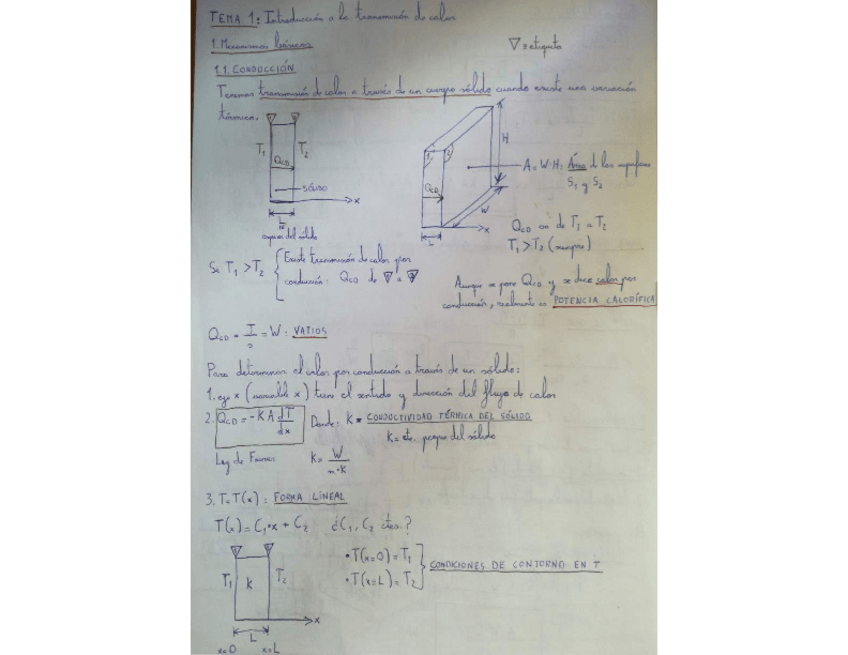 TEMA 1: Introducción a la transmisión de calor
1. Mecanismos básicos
▽ ≡ etiqueta
1.1. CONDUCCIÓN
Tenemos transmisión de calor a través de un cuerpo sólido cuando existe una variación
térmica.
T1 QCD T2
SÓLIDO
x
L
espesor del sólido
1 2
H
QCD
W
L x
A = W·H: Área de las superficies
S1 y S2
QCD va de T1 a T2
T1 > T2 (siempre)
Si T1 > T2 { Existe transmisión de calor por
conducción: QCD de ▽1 a ▽2
Aunque se pone QCD y se dice calor por
conducción, realmente es POTENCIA CALORÍFICA
QCD = J/s = W: VATIOS
Para determinar el calor por conducción a través de un sólido:
1. eje x (variable x) tiene el sentido y dirección del flujo de calor
2. QCD = -K A dT/dx Donde: K = CONDUCTIVIDAD TÉRMICA DEL SÓLIDO
K = cte. propia del sólido
Ley de Fourier K = W/m·K
3. T = T(x): FORMA LINEAL
T(x) = C1·x + C2 ¿C1, C2 ctes.?
T1 K T2
• T(x=0) = T1
• T(x=L) = T2
} CONDICIONES DE CONTORNO EN T
x
L
x=0 x=L